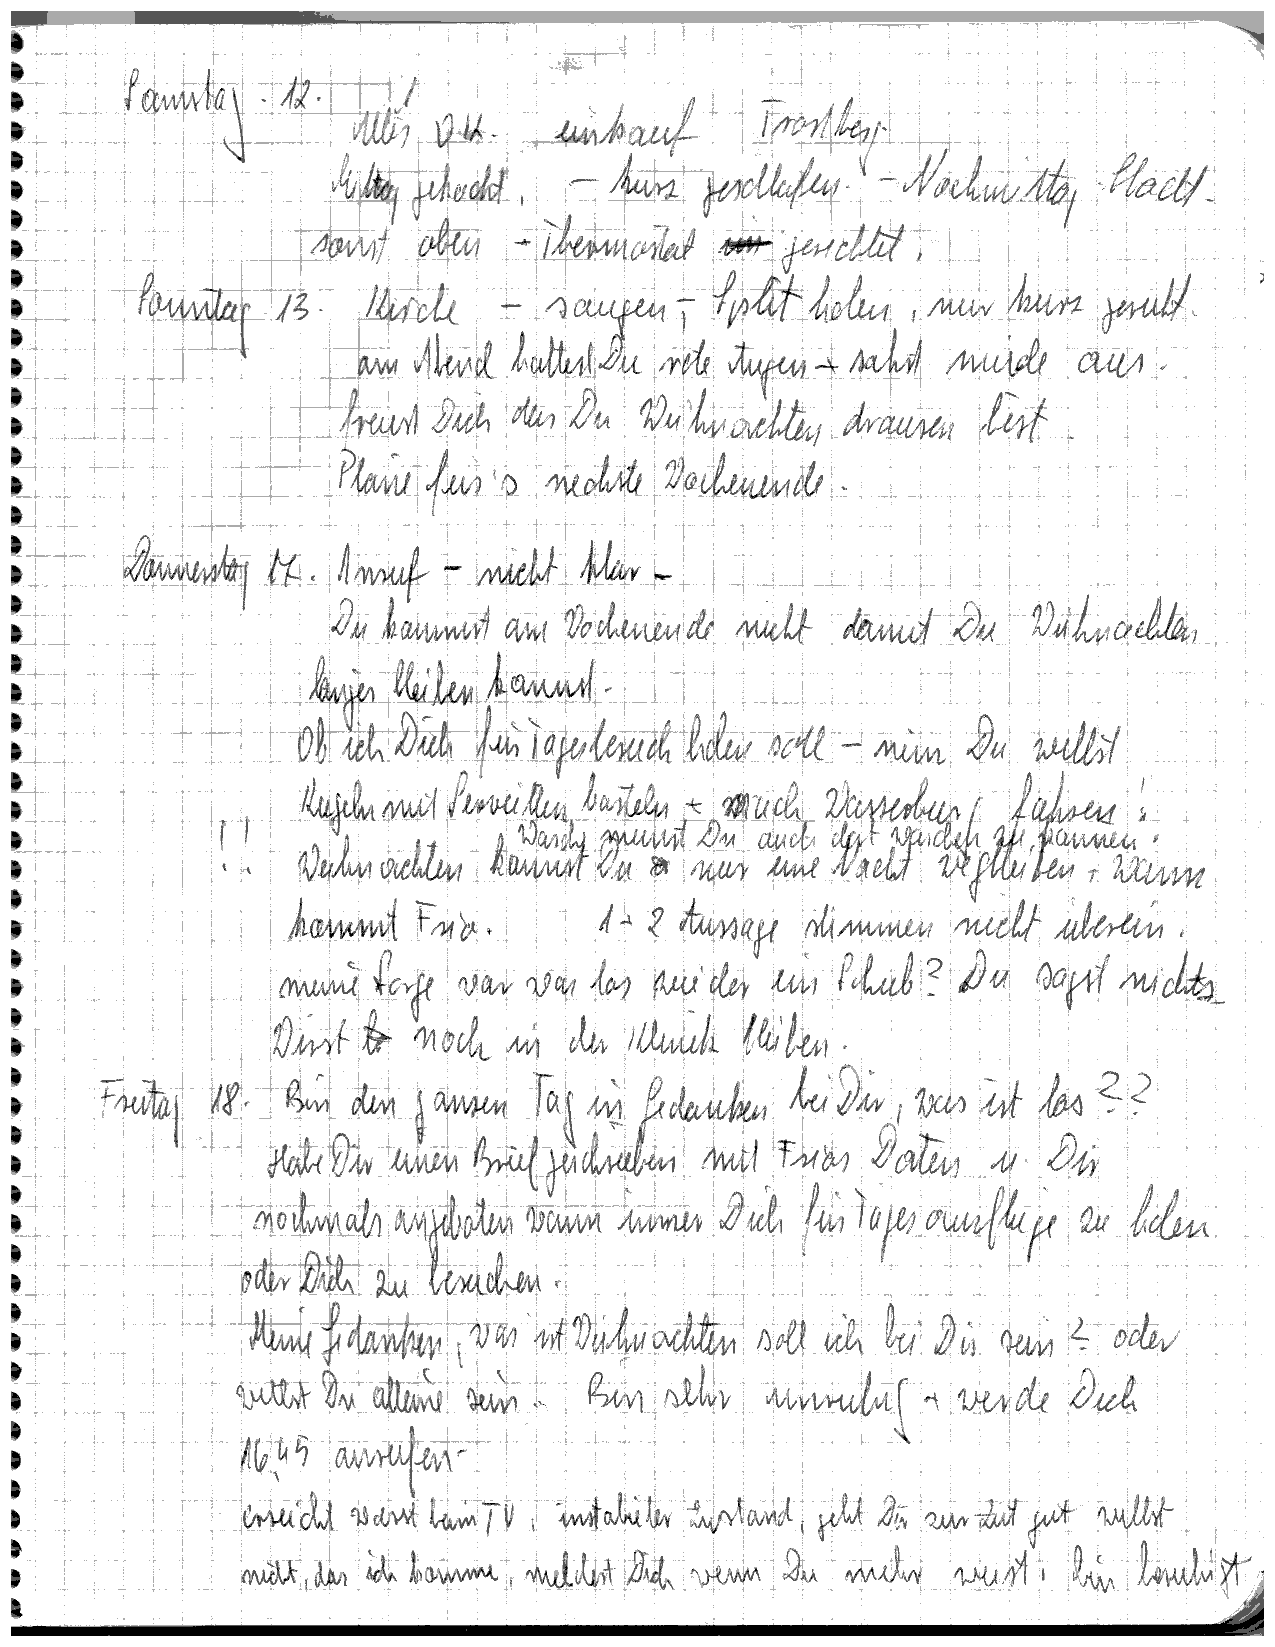 Samstag . 12.
Alles o.k. einkauf Trostberg
Mittag gekocht. – kurz geschlafen. – Nachmittag Stadt –
sonst oben – Thermostat gerichtet.
Sonntag 13. Kirche – saugen, – Split holen, nur kurz geruht.
am Abend hattest Du rote Augen + sahst müde aus.
freust Dich das Du Weihnachten drausen bist.
Pläne für's nechste Wochenende.
Donnerstag 17. Anruf – nicht klar –
Du kommst am Wochenende nicht damit Du Weihnachten
länger bleiben kannst.
Ob ich Dich für Tagesbesuch holen soll – nein Du willst
Kugeln mit Servietten basteln + nach Wasserburg fahren !
Wasch meinst Du auch dort waschen zu können.
!! Weihnachten kannst Du nur eine Nacht wegbleiben, wann
kommt Fria. 1 + 2 Aussage stimmen nicht überein.
meine Sorge war was los wieder ein Schub? Du sagst nichts
Wirst noch in der Klinik bleiben.
Freitag 18. Bin den ganzen Tag in Gedanken bei Dir, was ist los ??
Habe Dir einen Brief geschrieben mit Frias Daten u. Dir
nochmals angeboten wann immer Dich für Tagesausflüge zu holen
oder Dich zu besuchen.
Meine Gedanken, was ist Weihnachten soll ich bei Dir sein? oder
willst Du alleine sein. Bin sehr unruhig + werde Dich
16.45 anrufen –
erreicht warst beim TV, instabieler Zustand, geht Dir zur Zeit gut willst
nicht, das ich komme, meldest Dich wenn Du mehr weist. bin beruhigt